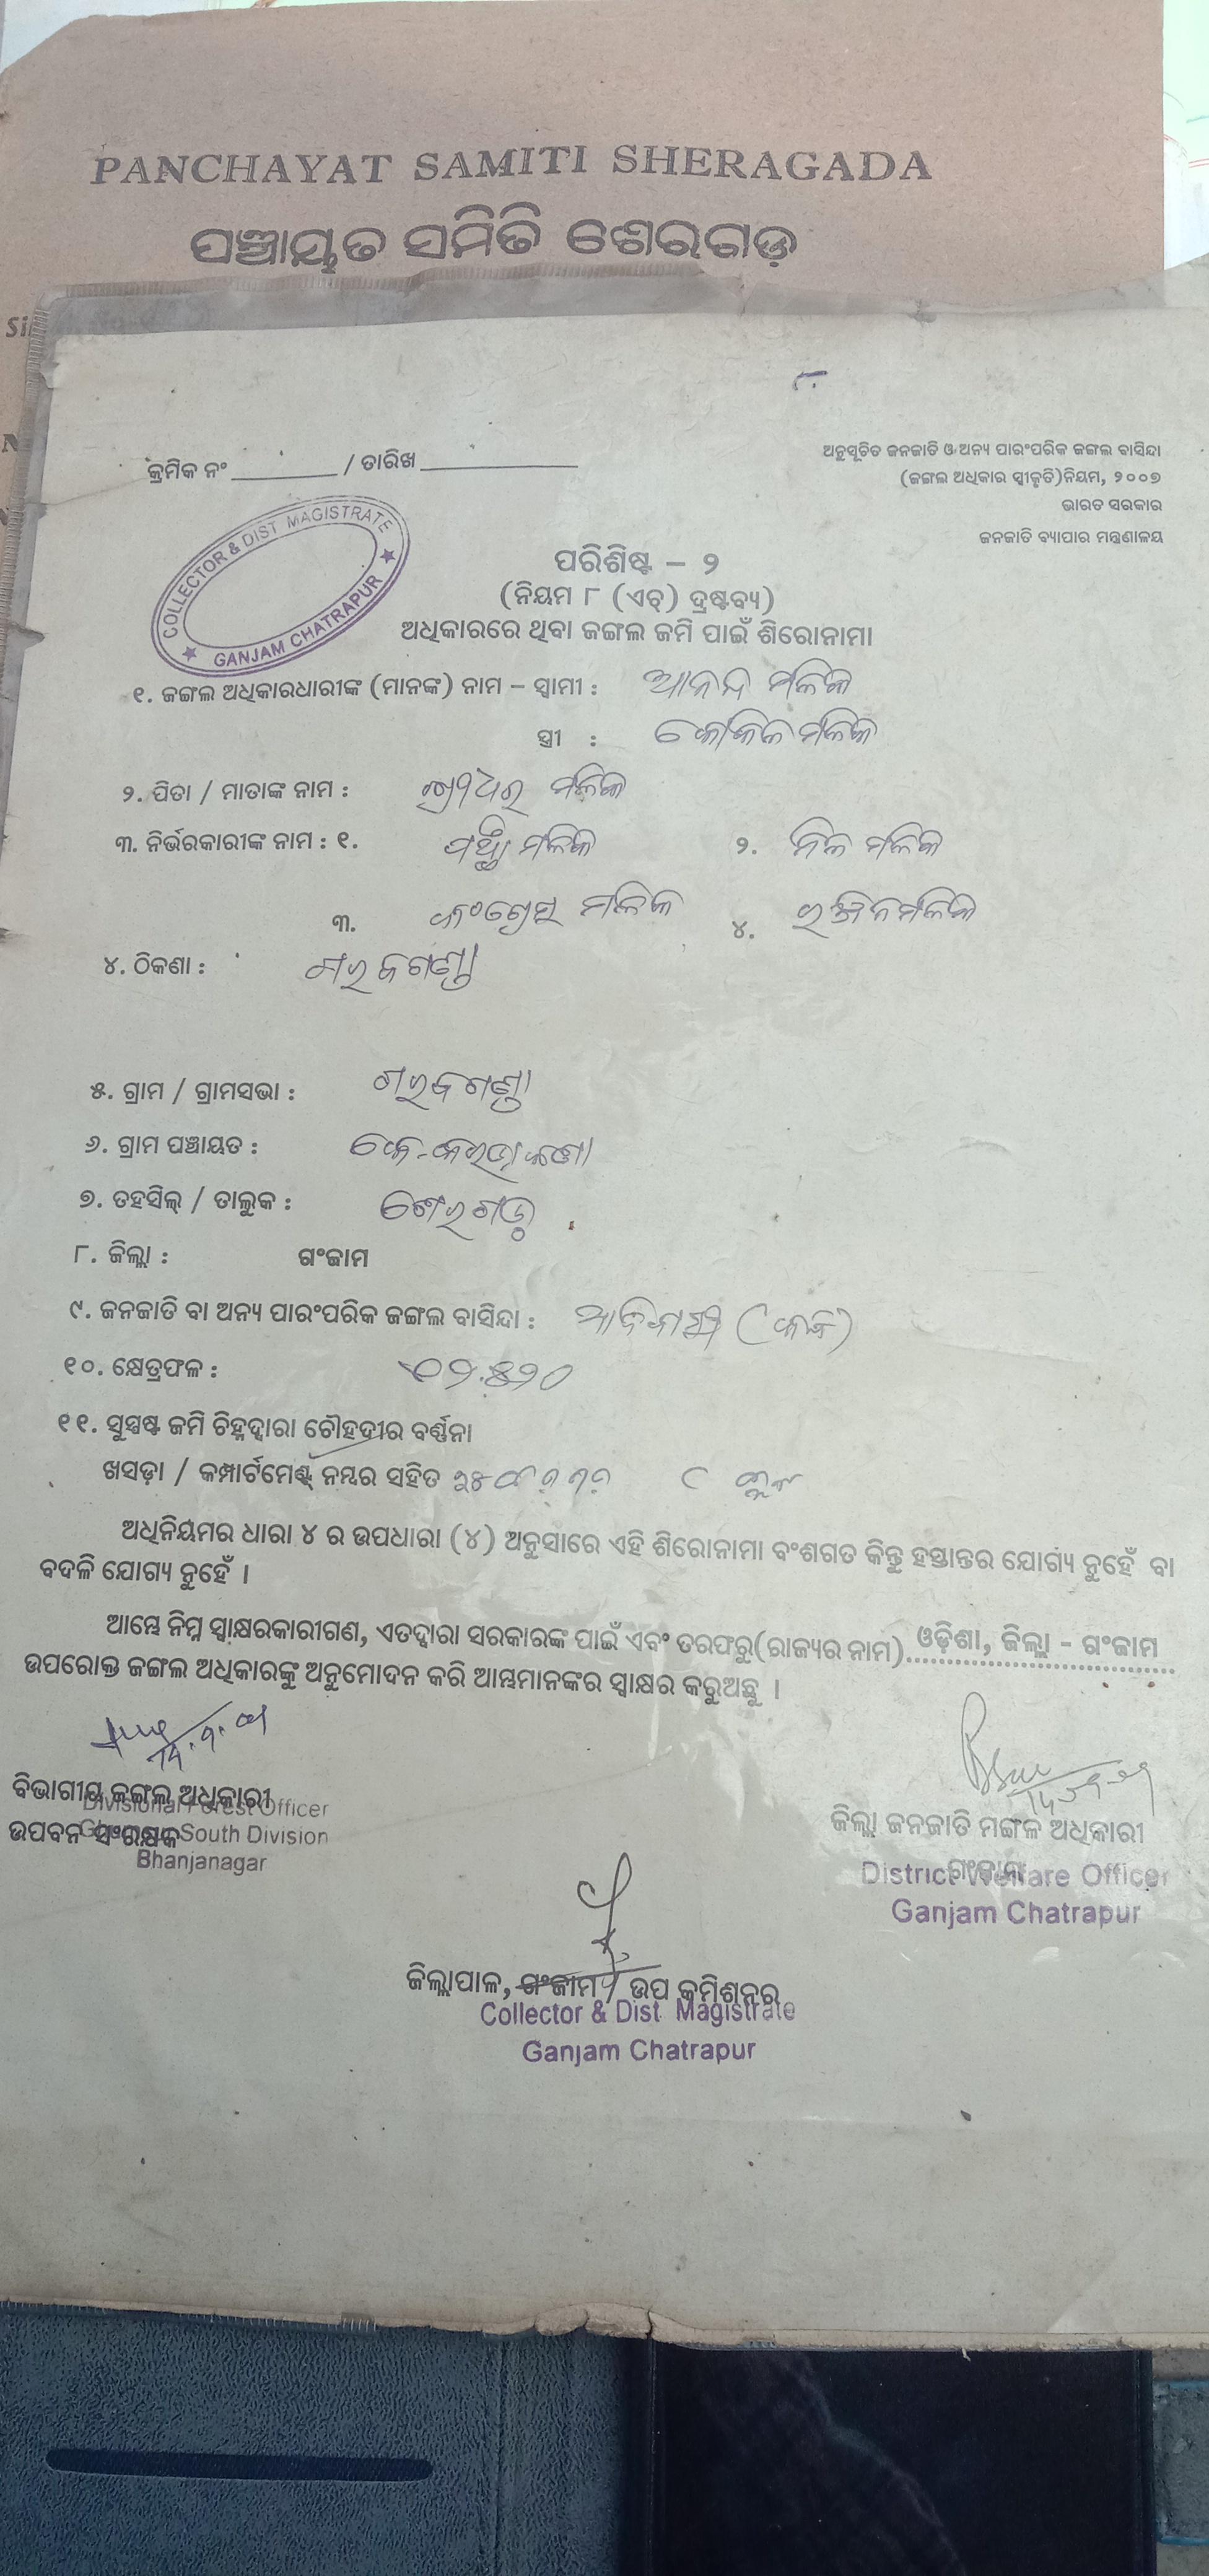 PANCHAYAT SAMITI SHERAGADA
ପଞ୍ଚାୟତ ସମିତି ଶେରଗଡ଼
କ୍ରମିକ ନଂ / ତାରିଖ
ଅନୁସୂଚିତ ଜନଜାତି ଓ ଅନ୍ୟ ପାରଂପରିକ ଜଙ୍ଗଲ ବାସିନ୍ଦା
(ଜଙ୍ଗଲ ଅଧିକାର ସ୍ୱୀକୃତି)ନିୟମ, ୨୦୦୭
ଭାରତ ସରକାର
ଜନଜାତି ବ୍ୟାପାର ମନ୍ତ୍ରଣାଳୟ
COLLECTOR & DIST MAGISTRATE
GANJAM CHATRAPUR
ପରିଶିଷ୍ଟ – ୨
(ନିୟମ ୮ (ଏଚ୍) ଦ୍ରଷ୍ଟବ୍ୟ)
ଅଧିକାରରେ ଥିବା ଜଙ୍ଗଲ ଜମି ପାଇଁ ଶିରୋନାମା
୧. ଜଙ୍ଗଲ ଅଧିକାରଧାରୀଙ୍କ (ମାନଙ୍କ) ନାମ – ସ୍ୱାମୀ : ଆନନ୍ଦ ମଳିକ
ସ୍ତ୍ରୀ : କୋକିଳ ମଳିକ
୨. ପିତା / ମାତାଙ୍କ ନାମ : ମଳିକ
୩. ନିର୍ଭରକାରୀଙ୍କ ନାମ : ୧. ମଳିକ ୨. ନିଳ ମଳିକ
୩. ମଳିକ ୪. ମଳିକ
୪. ଠିକଣା :
୫. ଗ୍ରାମ / ଗ୍ରାମସଭା :
୬. ଗ୍ରାମ ପଞ୍ଚାୟତ :
୭. ତହସିଲ୍ / ତାଲୁକ : ଶେରଗଡ଼
୮. ଜିଲ୍ଲା : ଗଂଜାମ
୯. ଜନଜାତି ବା ଅନ୍ୟ ପାରଂପରିକ ଜଙ୍ଗଲ ବାସିନ୍ଦା :
୧୦. କ୍ଷେତ୍ରଫଳ :
୧୧. ସୁସ୍ପଷ୍ଟ ଜମି ଚିହ୍ନଦ୍ୱାରା ଚୌହଦ୍ଦୀର ବର୍ଣ୍ଣନା
ଖସଡ଼ା / କମ୍ପାର୍ଟମେଣ୍ଟ୍ ନମ୍ବର ସହିତ
ଅଧିନିୟମର ଧାରା ୪ ର ଉପଧାରା (୪) ଅନୁସାରେ ଏହି ଶିରୋନାମା ବଂଶଗତ କିନ୍ତୁ ହସ୍ତାନ୍ତର ଯୋଗ୍ୟ ନୁହେଁ ବା
ବଦଳି ଯୋଗ୍ୟ ନୁହେଁ ।
ଆମ୍ଭେ ନିମ୍ନ ସ୍ୱାକ୍ଷରକାରୀଗଣ, ଏତଦ୍ୱାରା ସରକାରଙ୍କ ପାଇଁ ଏବଂ ତରଫରୁ(ରାଜ୍ୟର ନାମ) ଓଡ଼ିଶା, ଜିଲ୍ଲା - ଗଂଜାମ
ଉପରୋକ୍ତ ଜଙ୍ଗଲ ଅଧିକାରଙ୍କୁ ଅନୁମୋଦନ କରି ଆମ୍ଭମାନଙ୍କର ସ୍ୱାକ୍ଷର କରୁଅଛୁ ।
ବିଭାଗୀୟ ଜଙ୍ଗଲ ଅଧିକାରୀ
Divisional Forest Officer
ଉପବନ ସଂରକ୍ଷକ
South Division
Bhanjanagar
ଜିଲ୍ଲା ଜନଜାତି ମଙ୍ଗଳ ଅଧିକାରୀ
ଗଂଜାମ
District Welfare Officer
Ganjam Chatrapur
ଜିଲ୍ଲାପାଳ, ଗଂଜାମ / ଉପ କମିଶନର
Collector & Dist Magistrate
Ganjam Chatrapur